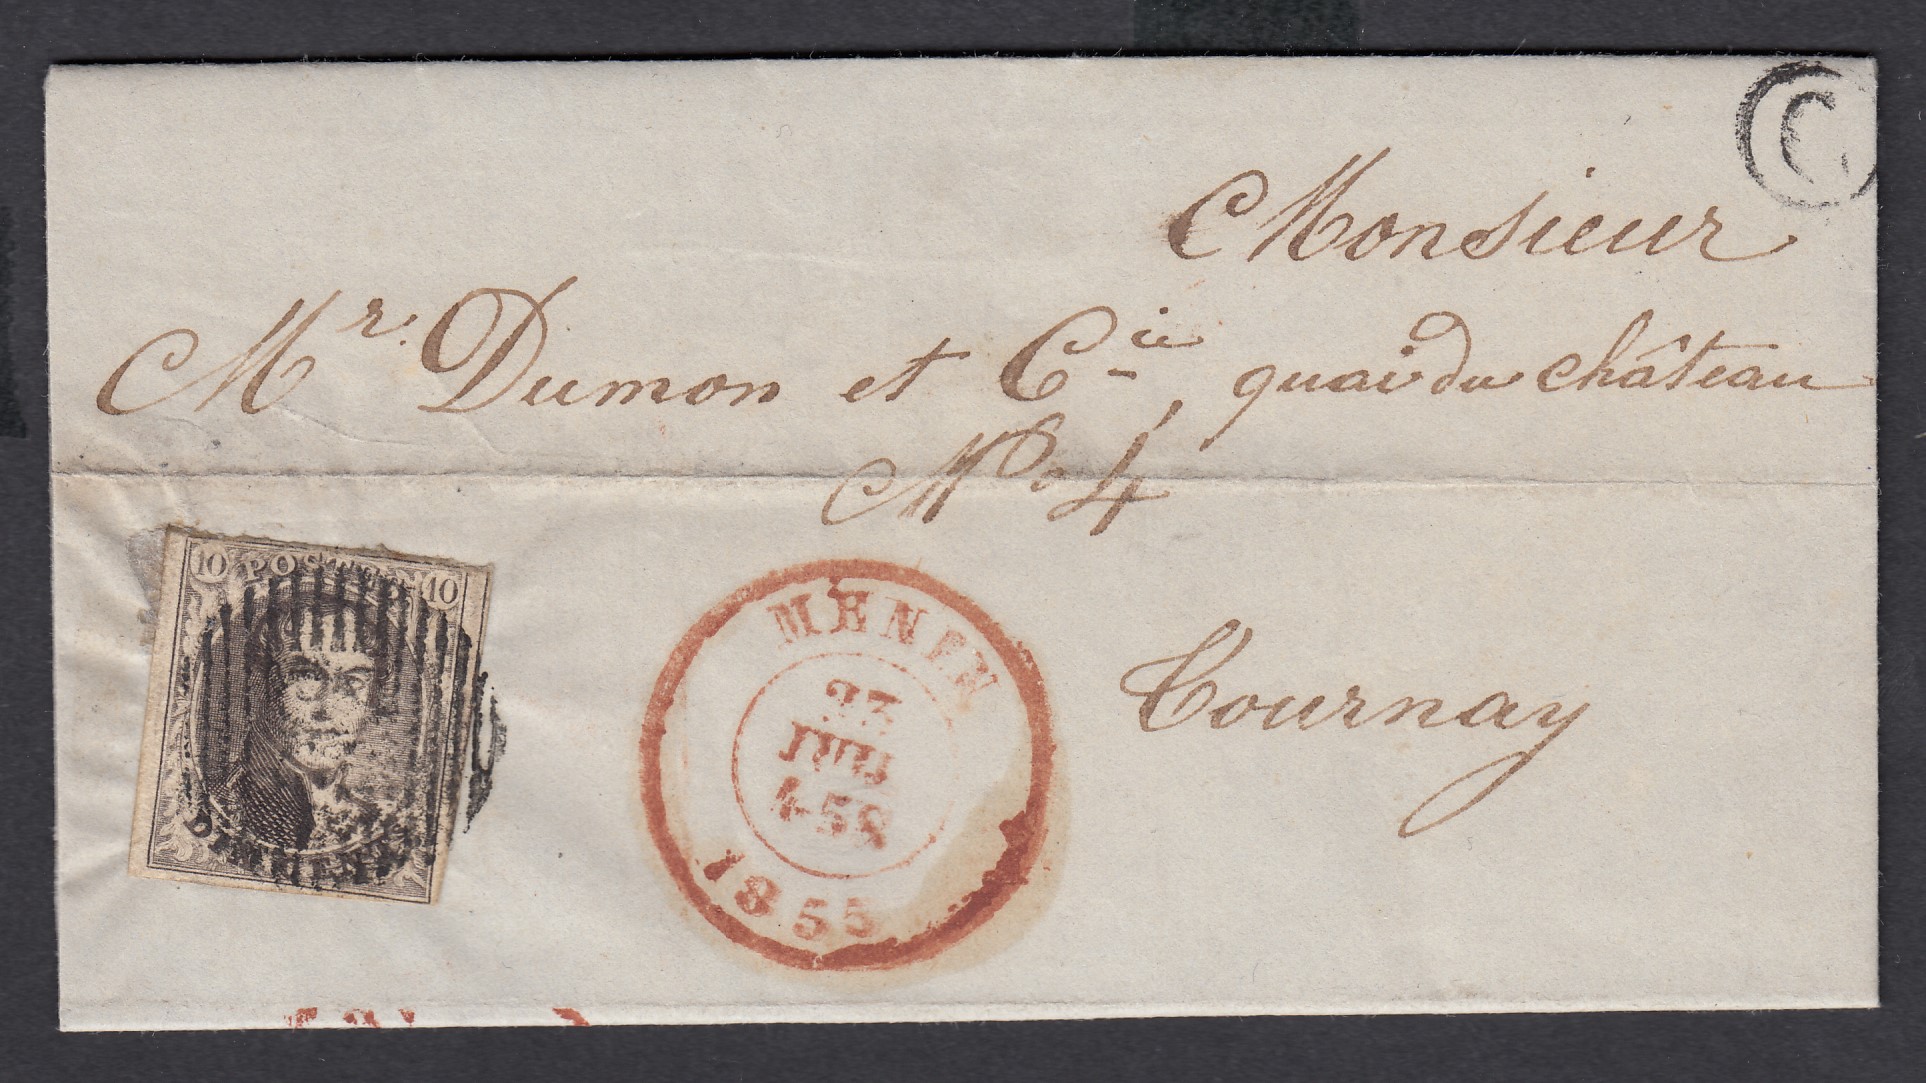 C
Monsieur
Mr. Dumon et Cie, quai du château
No. 4
10 POSTES 10
MENIN
23
JUIL
4-5S
1855
Tournay